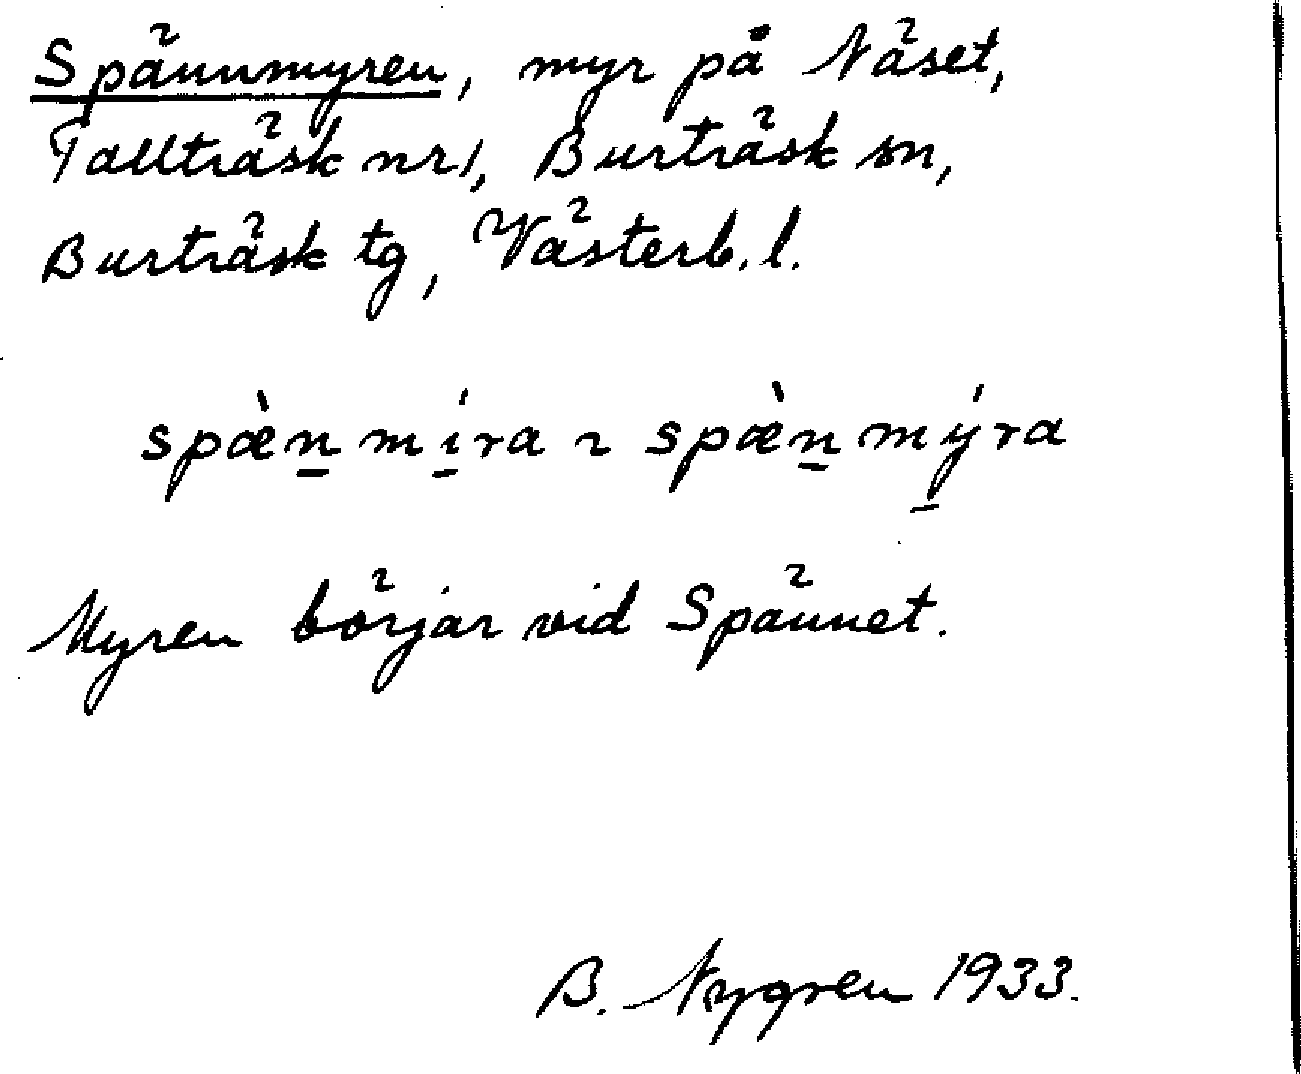 Spännmyren, myr på Näset,
Tallträsk nr 1, Burträsk sn,
Burträsk tg, Västerb. l.
spæ̀n̲mí̲ra ~ spæ̀n̲mý̲ra
Myren börjar vid Spännet.
B. Nygren 1933.